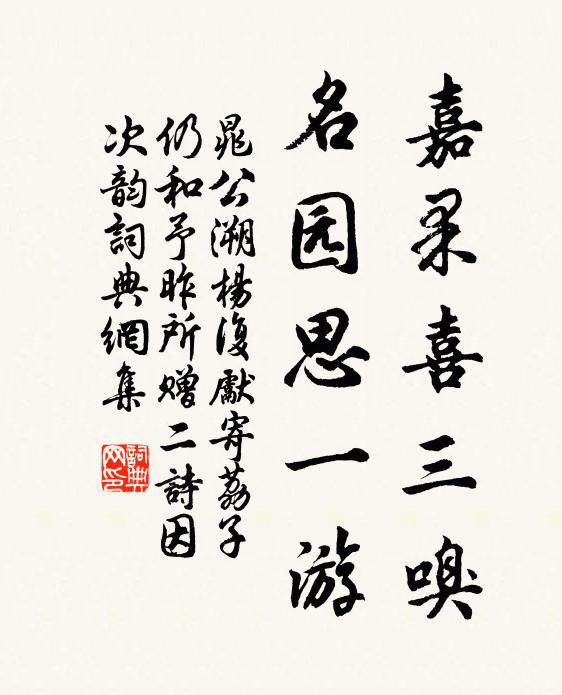 嘉果喜三嗅
名园思一游
晁公溯楊復獻寄荔子
仍和予昨所赠二詩因
次韵詞典網集
詞典网印